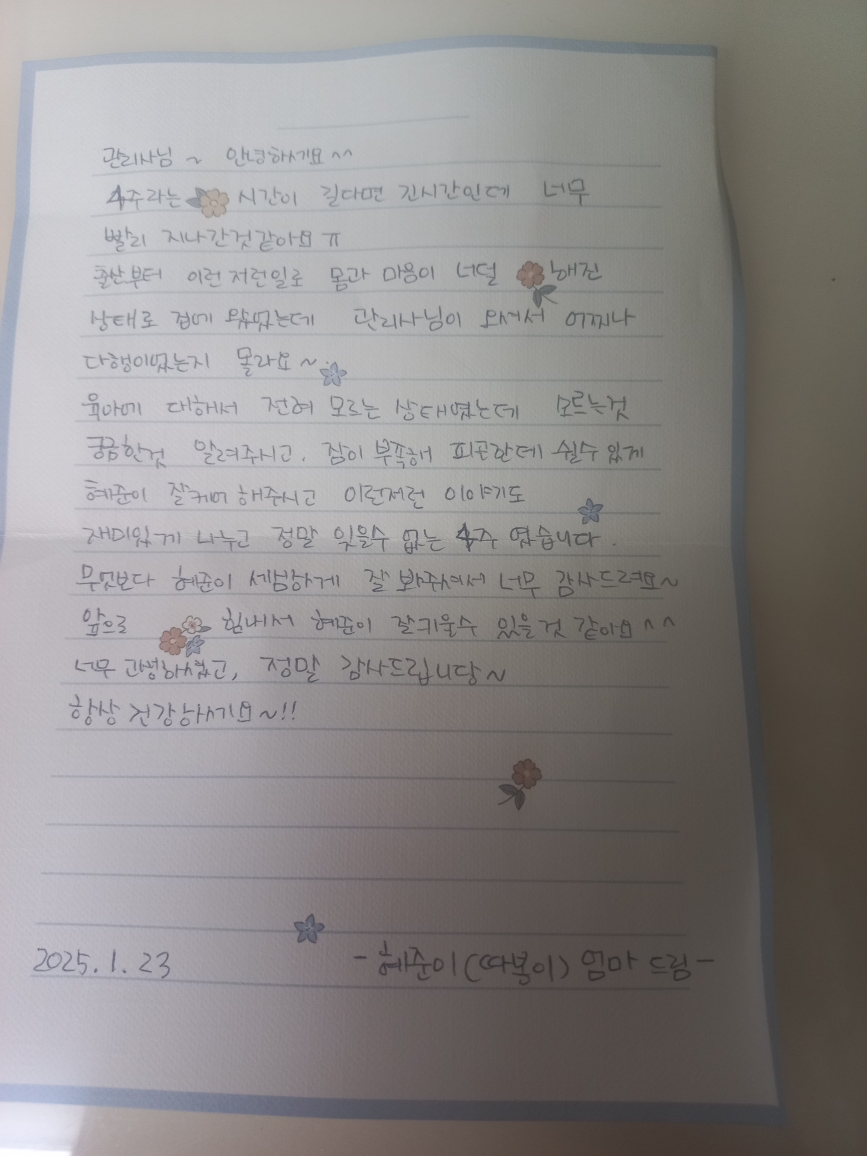 관리사님 ~ 안녕하세요 ^^
4주라는 시간이 길다면 긴시간인데 너무
빨리 지나간것같아요 ㅠ
출산부터 이런저런일로 몸과 마음이 너덜해진
상태로 집에 왔었는데 관리사님이 오셔서 어찌나
다행이었는지 몰라요~
육아에 대해서 전혀 모르는 상태였는데 모르는것
궁금한것 알려주시고, 잠이 부족해 피곤한데 쉴수 있게
혜준이 잘케어 해주시고 이런저런 이야기도
재미있게 나누고 정말 잊을수 없는 4주 였습니다.
무엇보다 혜준이 세심하게 잘 봐주셔서 너무 감사드려요~
앞으로 힘내서 혜준이 잘키울수 있을것 같아요 ^^
너무 고생하셨고, 정말 감사드립니당~
항상 건강하세요~!!
2025.1.23 -혜준이(따복이) 엄마 드림-